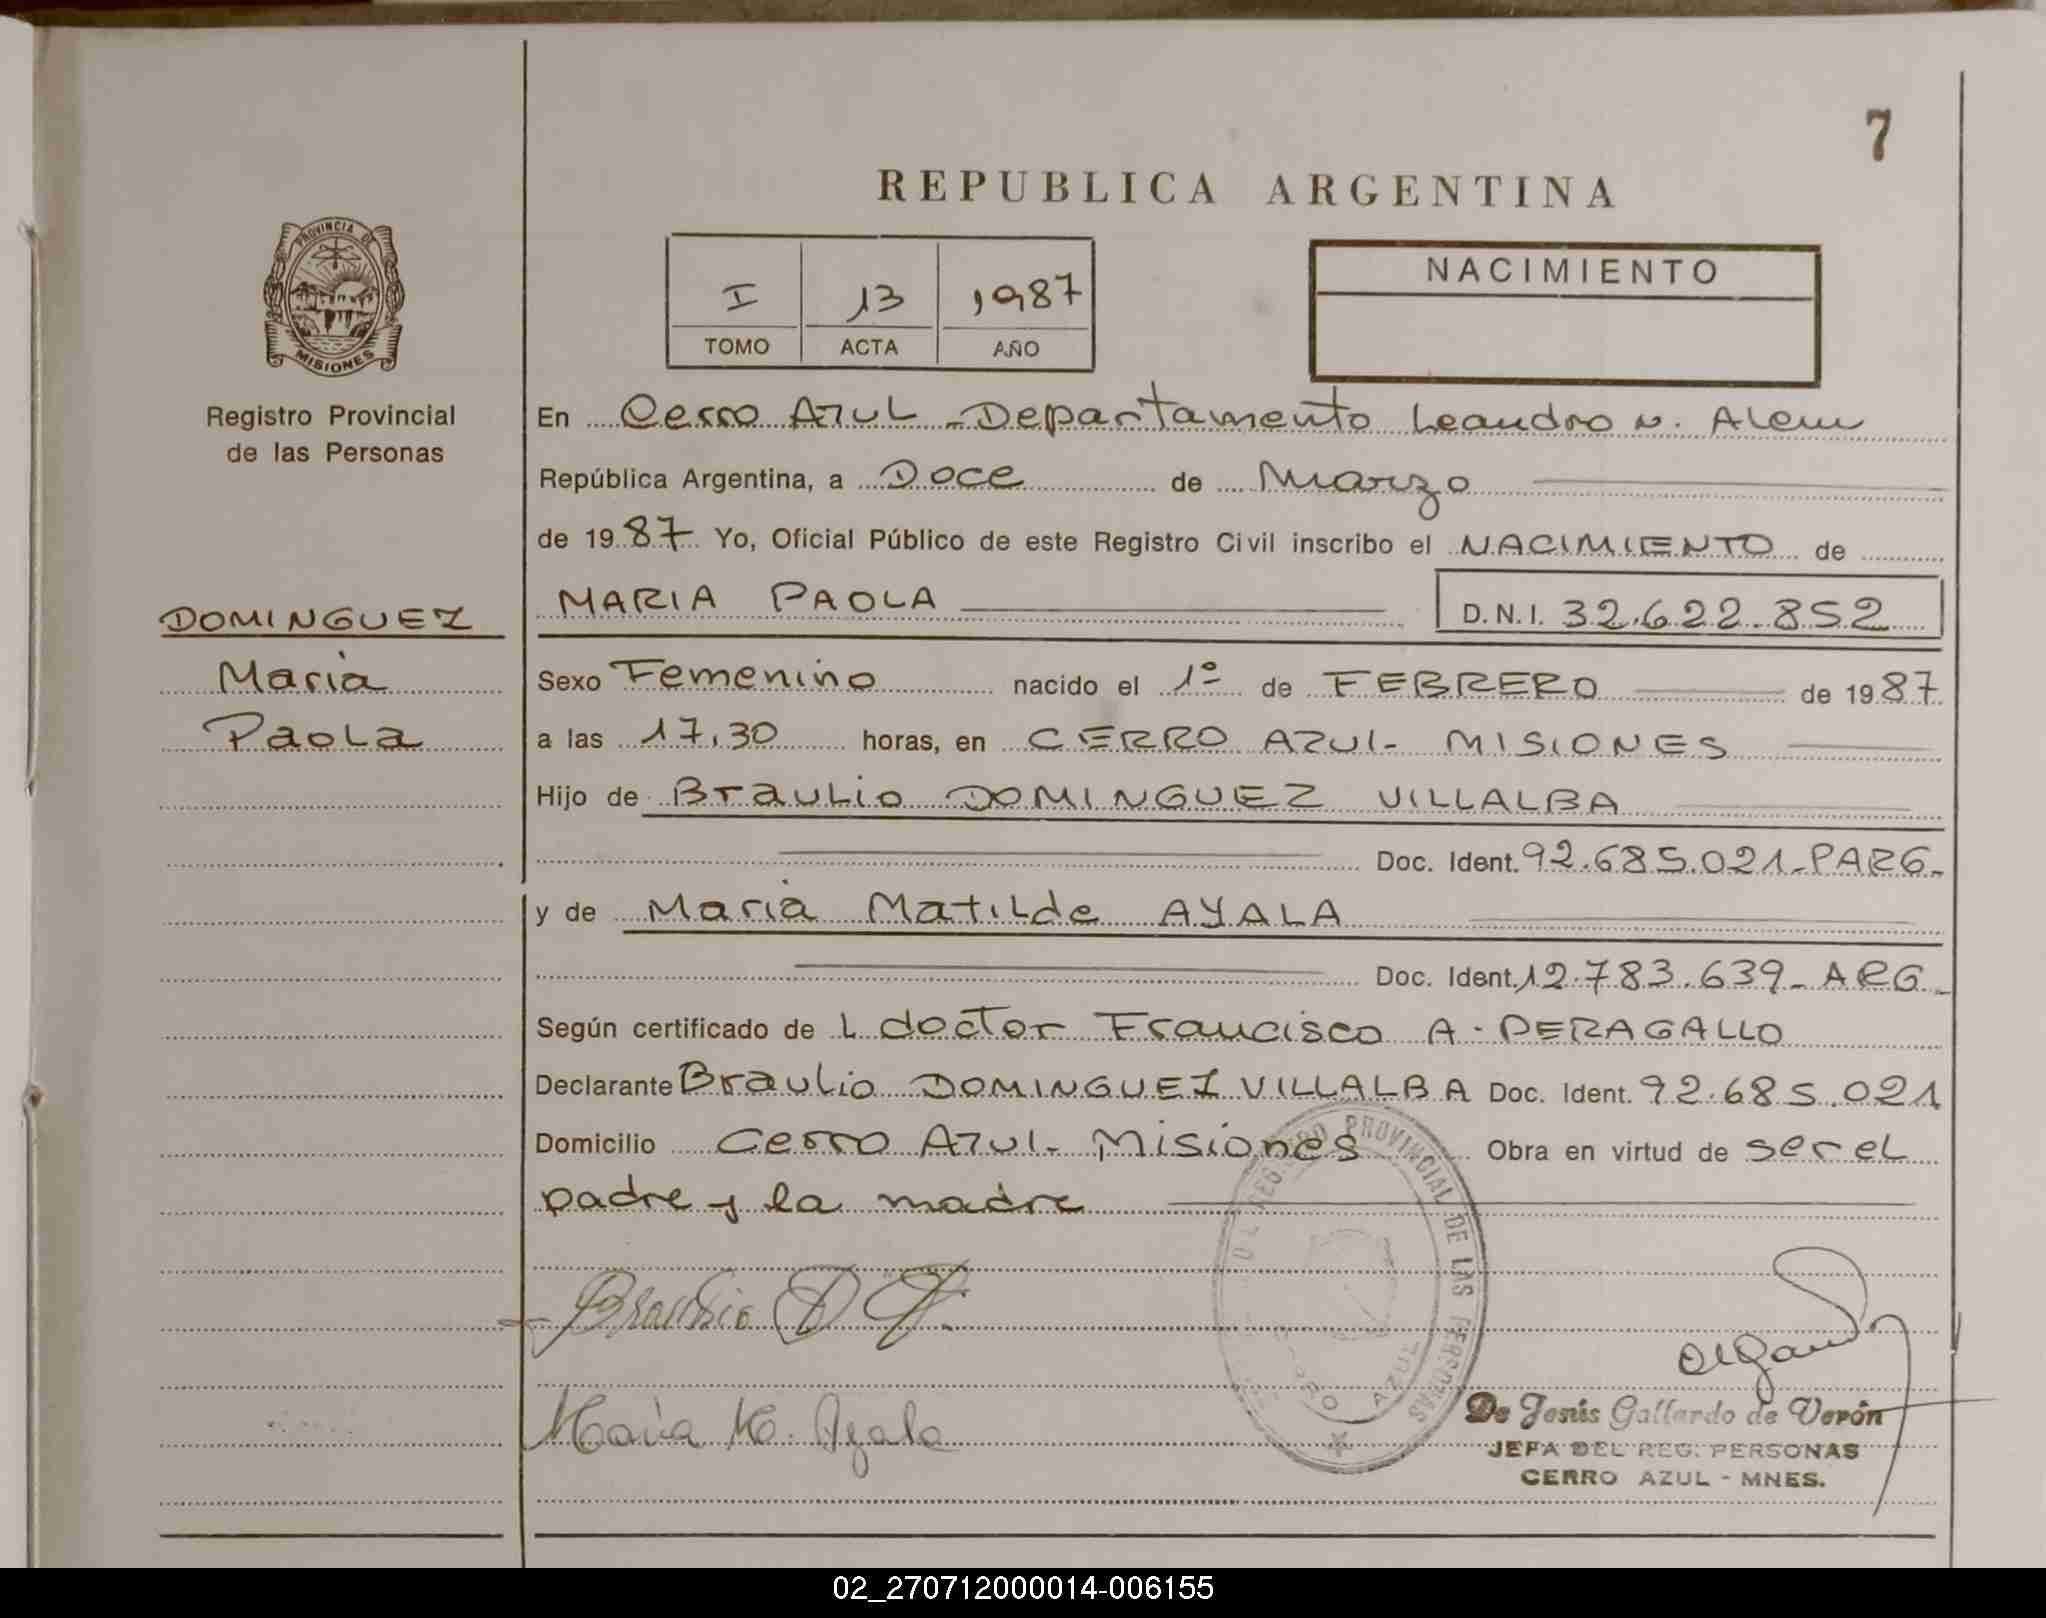 7
REPUBLICA ARGENTINA
PROVINCIA DE
MISIONES
Registro Provincial
de las Personas
I 13 1987
TOMO ACTA AÑO
NACIMIENTO
En Cerro Azul - Departamento Leandro N. Alem
República Argentina, a Doce de Marzo
de 1987 Yo, Oficial Público de este Registro Civil inscribo el NACIMIENTO de
MARIA PAOLA D.N.I. 32.622.852
DOMINGUEZ
Maria
Paola
Sexo Femenino nacido el 1º de FEBRERO de 1987
a las 17,30 horas, en CERRO AZUL- MISIONES
Hijo de Braulio DOMINGUEZ VILLALBA
Doc. Ident. 92.685.021-PARG-
y de Maria Matilde AYALA
Doc. Ident. 12.783.639- ARG-
Según certificado de L doctor Francisco A. PERAGALLO
Declarante Braulio DOMINGUEZ VILLALBA Doc. Ident. 92.685.021
Domicilio Cerro Azul- Misiones Obra en virtud de ser el
padre y la madre
PROVINCIAL DE LAS PERSONAS
AZUL
Braulio D V.
Maria M. Ayala
De Jesús Gallardo de Verón
JEFA DEL REG. PERSONAS
CERRO AZUL - MNES.
02_270712000014-006155